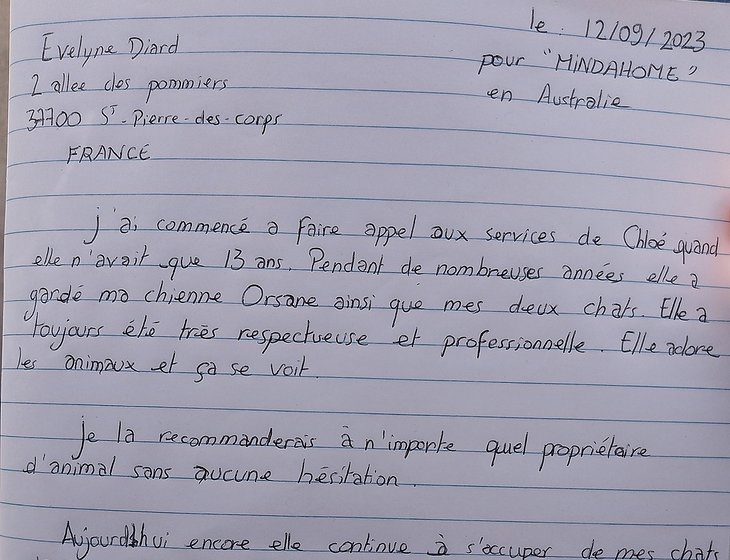 le : 12/09/2023
Evelyne Diard
pour "MiNDAHOME"
2 allee des pommiers
en Australie
37700 St-Pierre-des-corps
FRANCE
j'ai commencé a faire appel aux services de Chloé quand
elle n'avait que 13 ans. Pendant de nombreuses années elle a
gardé ma chienne Orsane ainsi que mes deux chats. Elle a
toujours été très respectueuse et professionnelle. Elle adore
les animaux et ça se voit.
je la recommanderais à n'importe quel propriétaire
d'animal sans aucune hésitation.
Aujourd'hui encore elle continue à s'occuper de mes chats